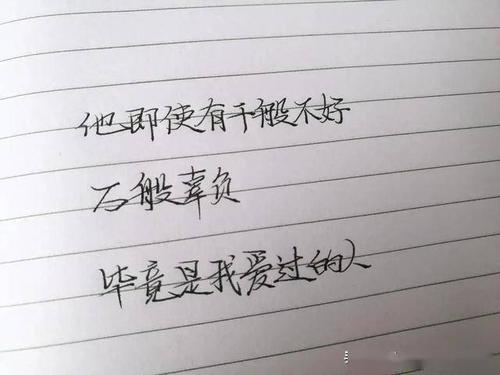 他即使有千般不好
万般辜负
毕竟是我爱过的人